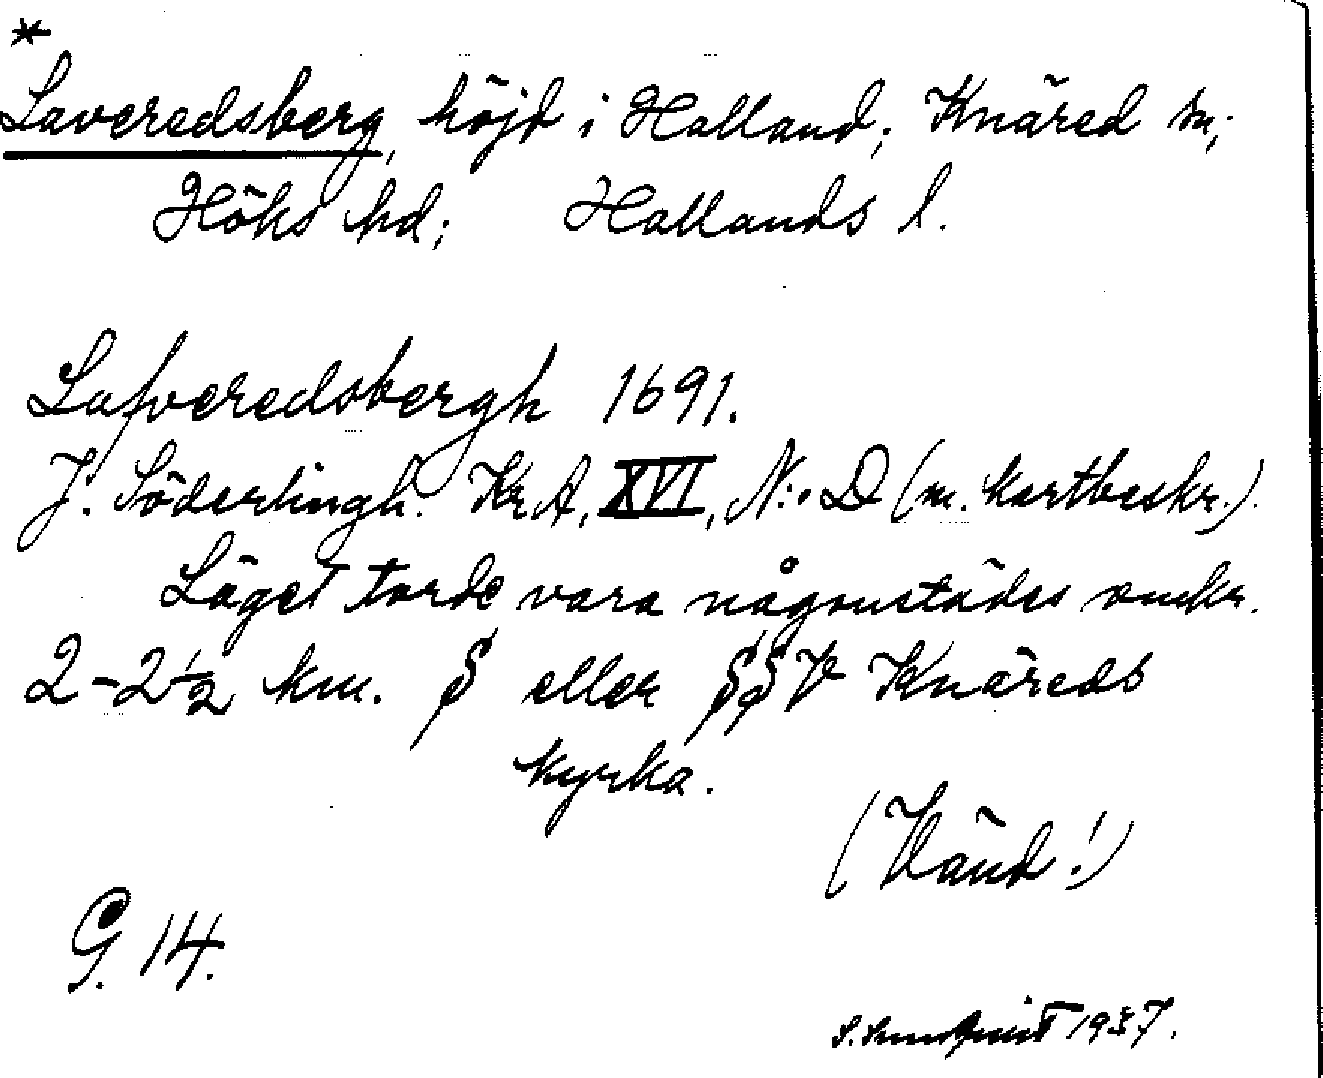 *
Laveredsberg, höjd i Halland; Knäred sn;
Höks hd; Hallands l.
Lafveredsbergh 1691.
J. Söderlingh. Kr.A, XVI, N:o D (m. kartbeskr.).
Läget torde vara någonstädes omkr.
2-2½ km. S eller SSV Knäreds
kyrka.
(Vänd!)
G. 14.
S. Sundquist 1937.